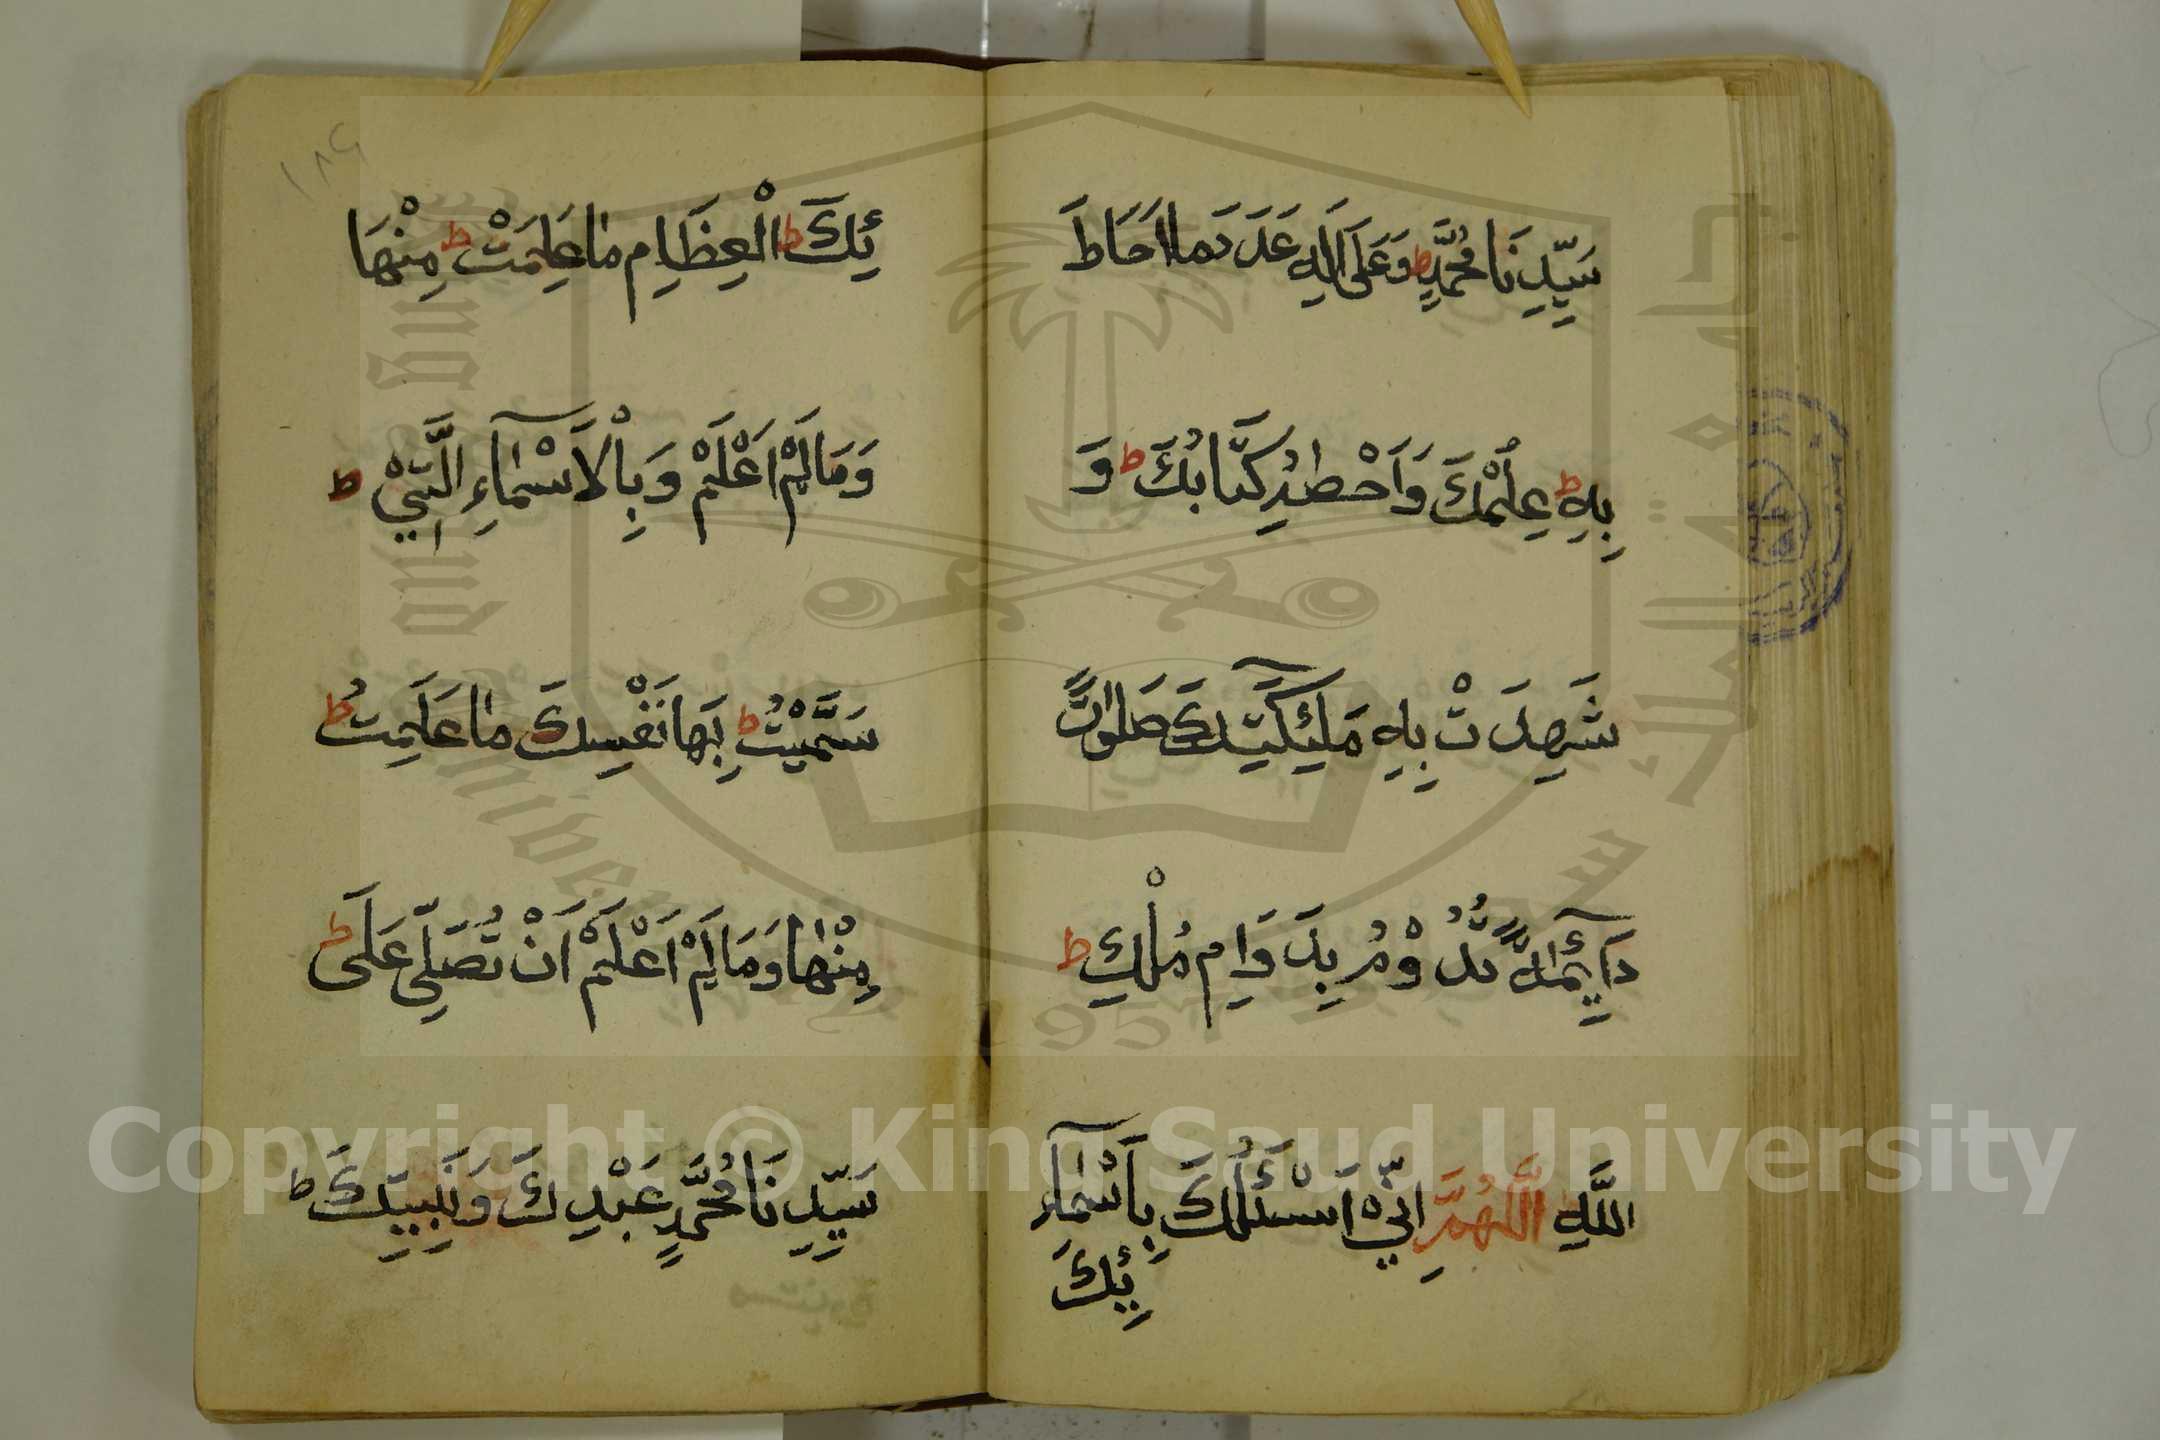 سَيِّدِنَا مُحَمَّدٍ ط وَعَلَى اَلِهِ عَدَدَ مَا اَحَاطَ
بِهِ ط عِلْمُكَ وَاَحْصٰيهُ كِتَّابُكَ ط وَ
شَهِدَتْ بِهِ مَلٰئِكَتِكَ صَلَوٰاتً
دَآئِمَةً تَدُوْمُ بِدَوَامِ مُلْكِ ط
اللَّهِ اَللَّهُمَّ اِنِّيْ اَسْئَلُكَ بِاَسْمَآءِ
ئِكَ
ئِكَ ط الْعِظَامِ مٰا عَلِمَتْ ط مِنْهَا
وَمَا لَمْ اَعْلَمْ وَبِالْاَسْمٰآءِ الَّتِيْ ط
سَمَّيْتُ ط بِهَا نَفْسِكَ مٰا عَلَمِتُ ط
مِنْهٰا وَمَا لَمْ اَعْلَمْ اَنْ تُصَلِّى عَلَى ط
سَيِّدِنَا مُحَمَّدٍ عَبْدِكَ وَنَبِيِّكَ ط
١٨٩
Copyright © King Saud University
1957